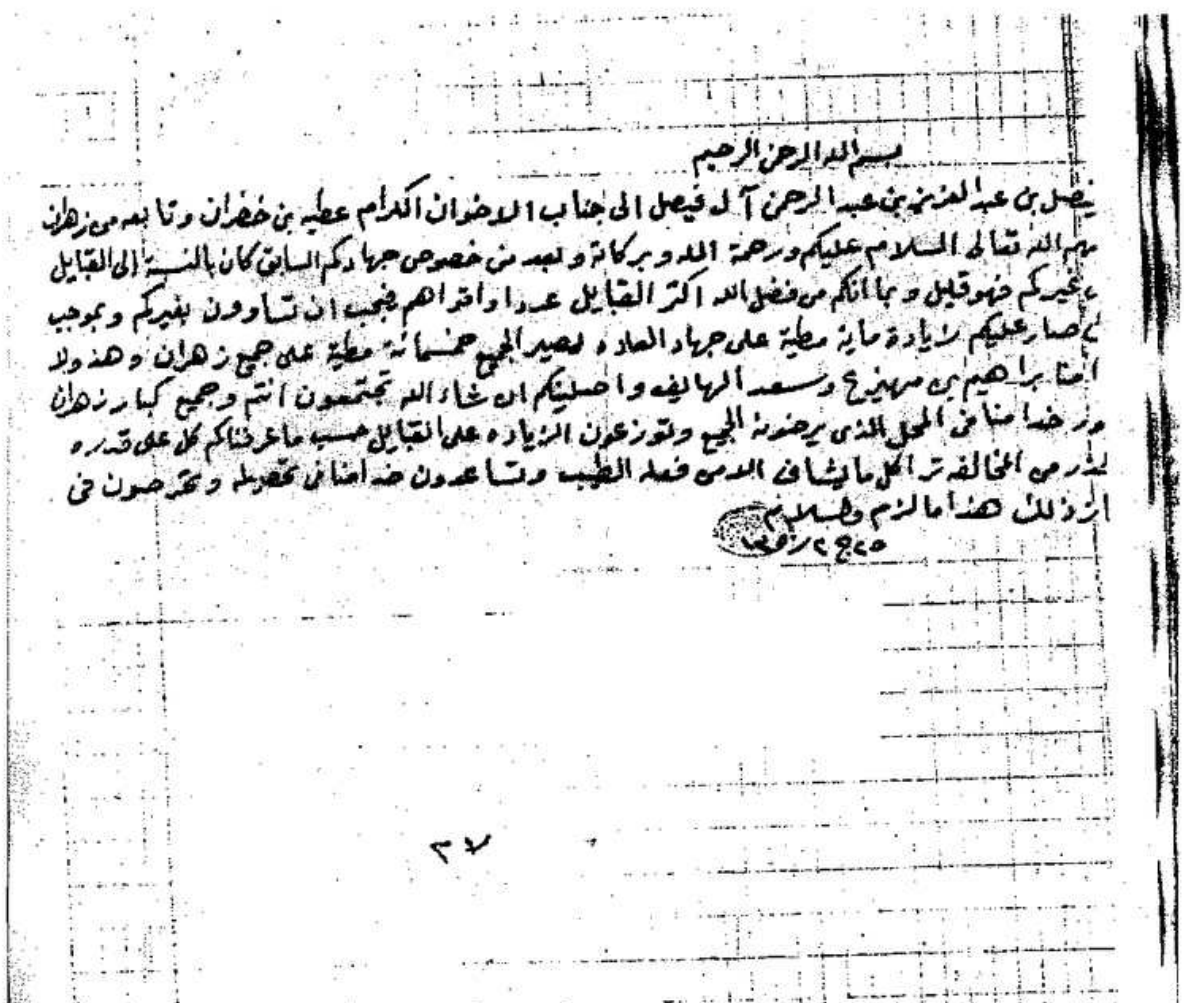 بسم الله الرحمن الرحيم
فيصل بن عبد العزيز بن عبد الرحمن آل فيصل الى جناب الاخوان الكرام عطيه بن خضران وتابعه من زهران
الله تعالى السلام عليكم ورحمة الله وبركاته وبعد من خصوص جهادكم السابق كان بالنسبة إلى القبايل
غيركم فهو قليل وبما انكم من فضل الله اكثر القبايل عددا واقواهم فيجب ان تساوون بغيركم وبموجب
صار عليكم زيادة ماية مطية على جهاد العاده ليصير الجميع خمسمائة مطية على جميع زهران وهذولا
ابراهيم بن مهيزع وسعد الهايف واصلينكم ان شاء الله تجتمعون انتم وجميع كبار زهران
خدامنا في المحل الذي يرضونه الجميع وتوزعون الزياده على القبايل حسب ما عرفناكم كل على قدره
من المخالفه ترا كل ما يشافى الدمن فعله الطيب وتساعدون خدامنا في تحصيله وتحرصون في
ذلك هذا ما لزم والسلام
٢٥ ج ٢
٣٧